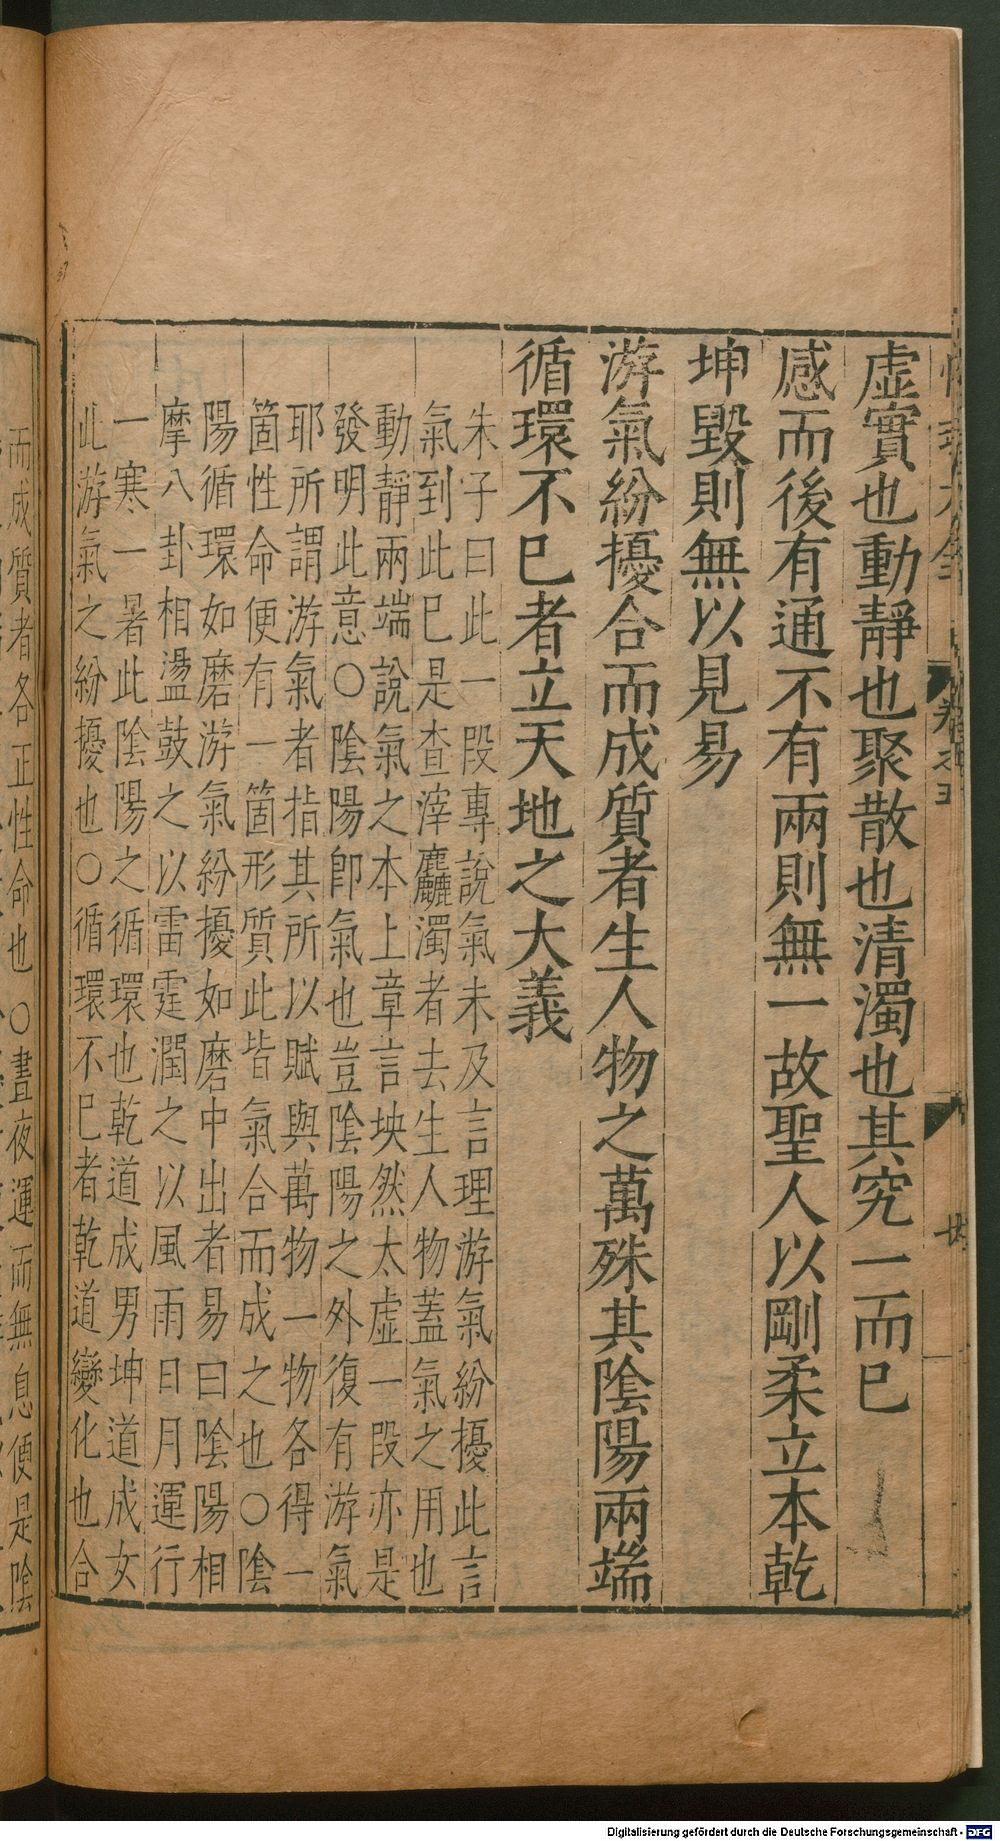 虛實也動靜也聚散也清濁也其究一而已
感而後有通不有兩則無一故聖人以剛柔立本乾
坤毀則無以見易
游氣紛擾合而成質者生人物之萬殊其陰陽兩端
循環不已者立天地之大義
朱子曰此一段專說氣未及言理游氣紛擾此言
氣到此已是查滓麤濁者去生人物蓋氣之用也
動靜兩端說氣之本上章言坱然太虛一段亦是
發明此意○陰陽卽氣也豈陰陽之外復有游氣
耶所謂游氣者指其所以賦與萬物一物各得一
箇性命便有一箇形質此皆氣合而成之也○陰
陽循環如磨游氣紛擾如磨中出者易曰陰陽相
摩八卦相盪鼓之以雷霆潤之以風雨日月運行
一寒一暑此陰陽之循環也乾道成男坤道成女
此游氣之紛擾也○循環不已者乾道變化也合
而成質者各正性命也○晝夜運而無息便是陰
Digitalisierung gefördert durch die Deutsche Forschungsgemeinschaft - DFG